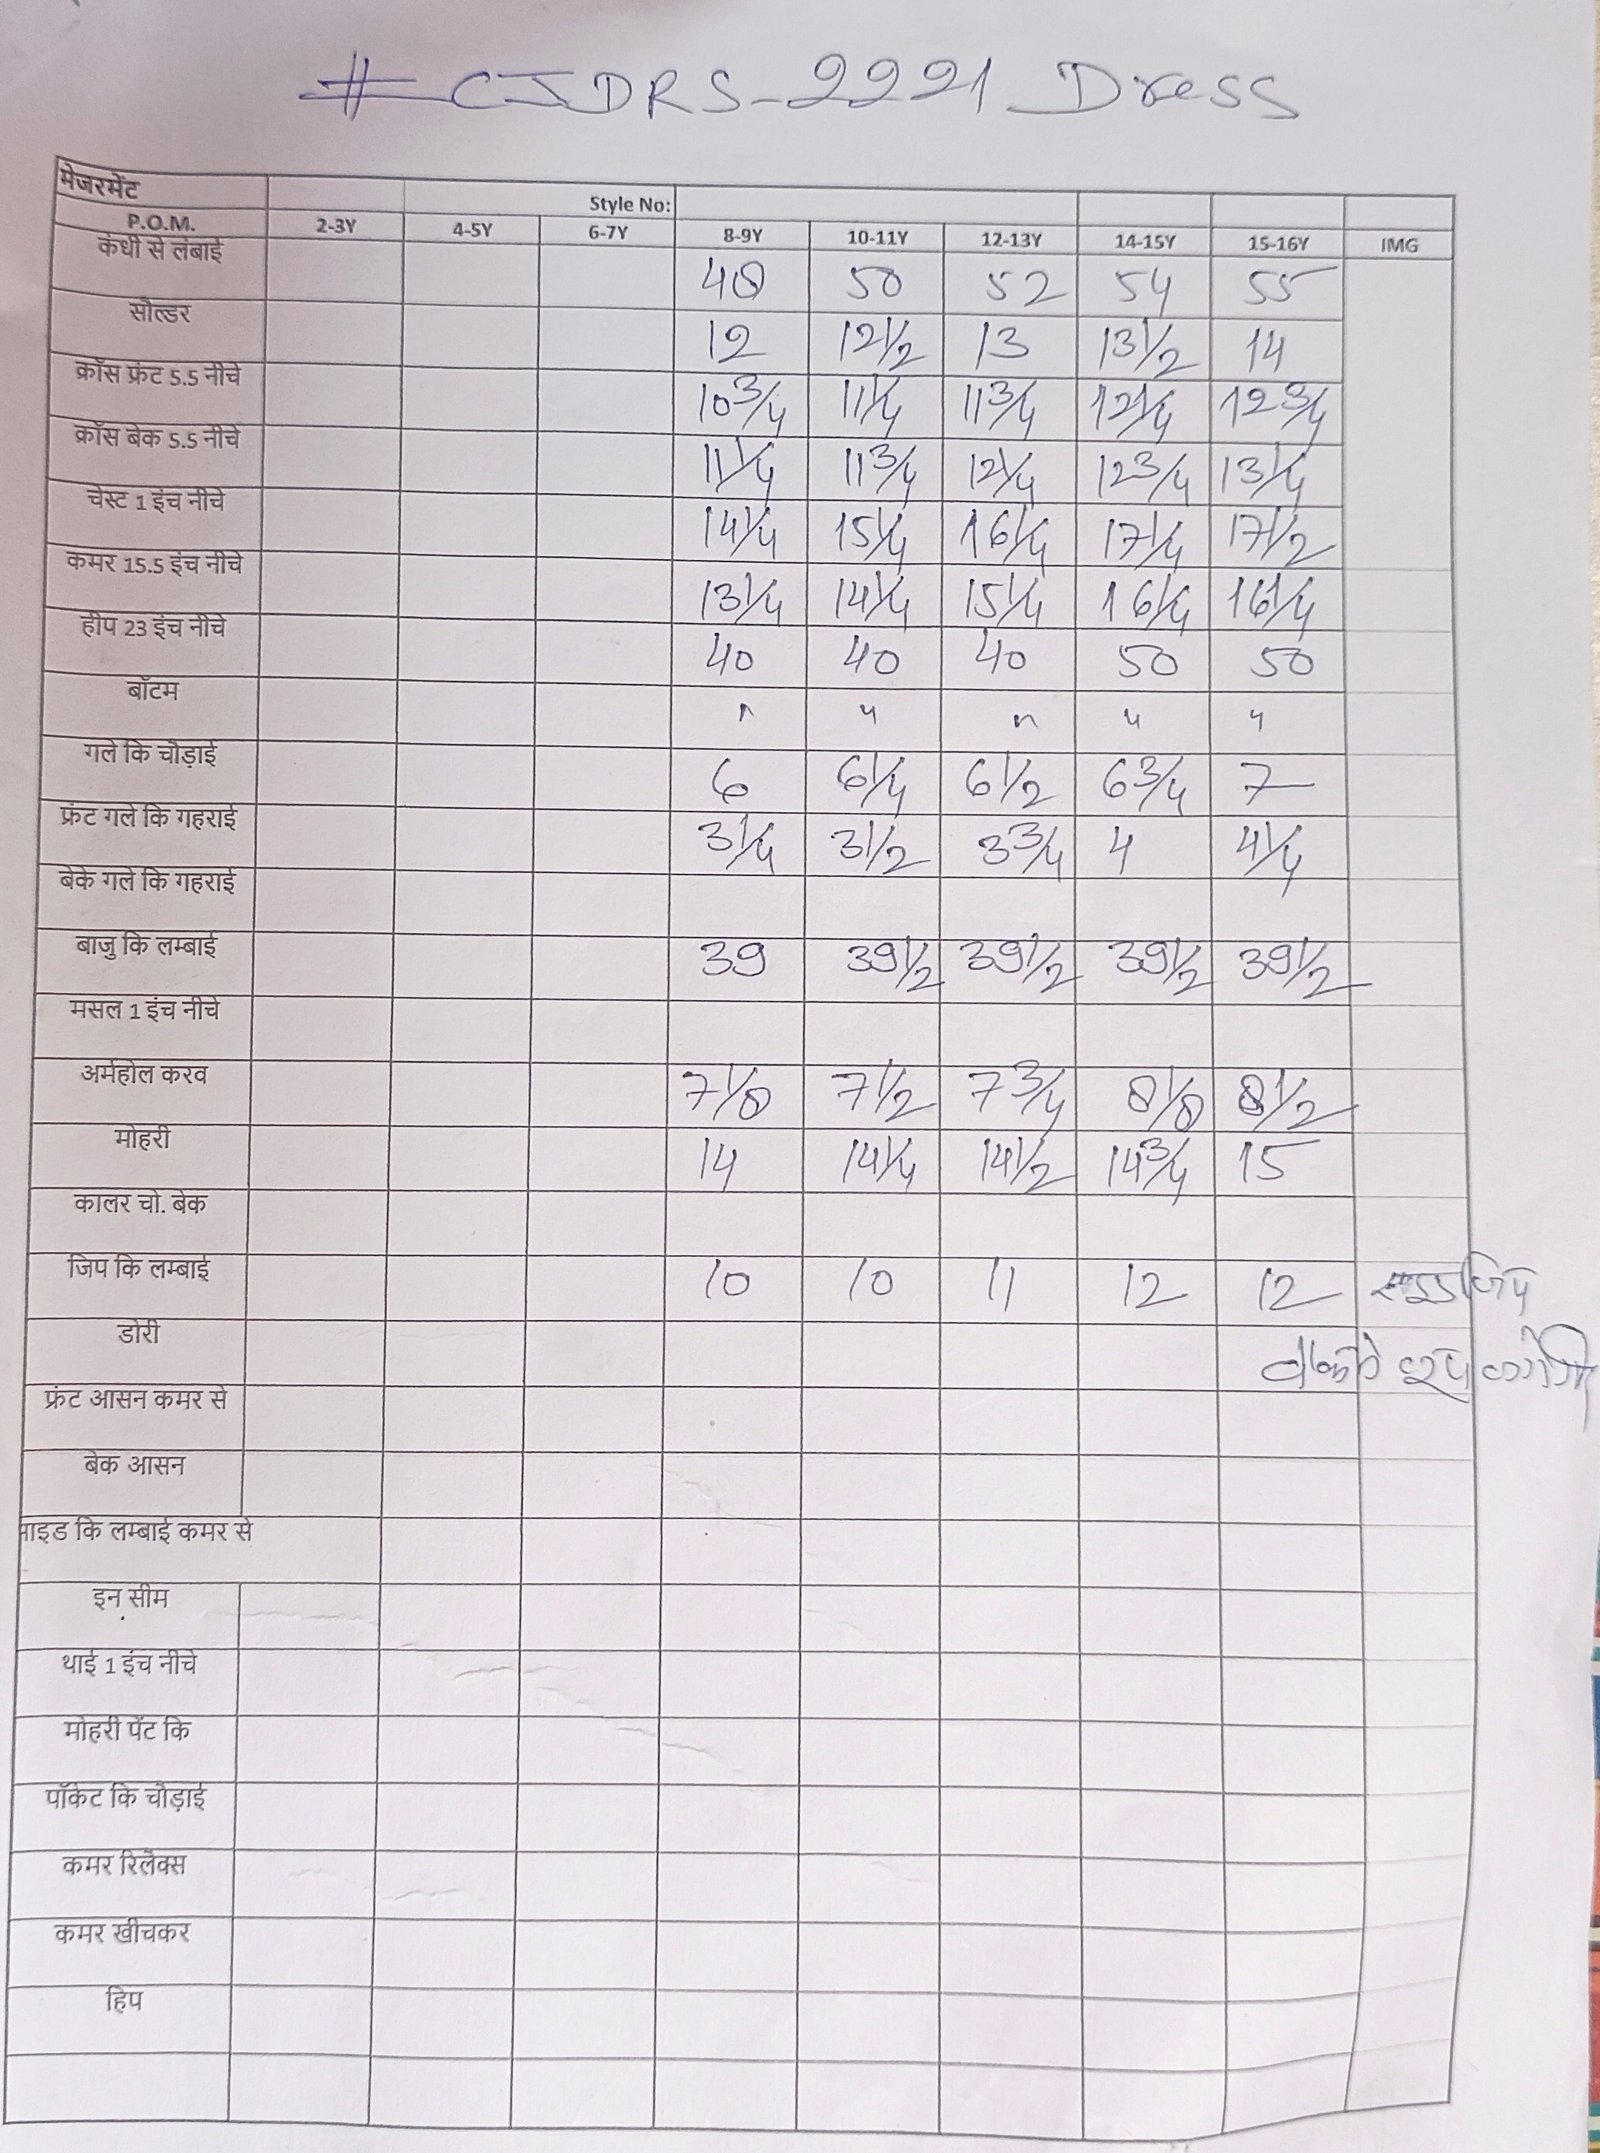 # CJDRS-2221 Dress
मेजरमेंट
Style No:
P.O.M. 2-3Y 4-5Y 6-7Y 8-9Y 10-11Y 12-13Y 14-15Y 15-16Y IMG
कंधी से लंबाई 48 50 52 54 55
सौल्डर 12 12 1/2 13 13 1/2 14
क्रॉस फ्रंट 5.5 नीचे 10 3/4 11 1/4 11 3/4 12 1/4 12 3/4
क्रॉस बेक 5.5 नीचे 11 1/4 11 3/4 12 1/4 12 3/4 13 1/4
चेस्ट 1 इंच नीचे 14 1/4 15 1/4 16 1/4 17 1/4 17 1/2
कमर 15.5 इंच नीचे 13 1/4 14 1/4 15 1/4 16 1/4 16 1/4
हीप 23 इंच नीचे 40 40 40 50 50
बॉटम " " " " "
गले कि चौड़ाई 6 6 1/4 6 1/2 6 3/4 7
फ्रंट गले कि गहराई 3 1/4 3 1/2 3 3/4 4 4 1/4
बेके गले कि गहराई
बाजु कि लम्बाई 39 39 1/2 39 1/2 39 1/2 39 1/2
मसल 1 इंच नीचे
अर्महोल करव 7 1/8 7 1/2 7 3/4 8 1/8 8 1/2
मोहरी 14 14 1/4 14 1/2 14 3/4 15
कालर चो. बेक
जिप कि लम्बाई 10 10 11 12 12 साइड जिप
डोरी
फ्रंट आसन कमर से
बेक आसन
साइड कि लम्बाई कमर से
इन सीम
थाई 1 इंच नीचे
मोहरी पेंट कि
पॉकेट कि चौड़ाई
कमर रिलेक्स
कमर खीचकर
हिप